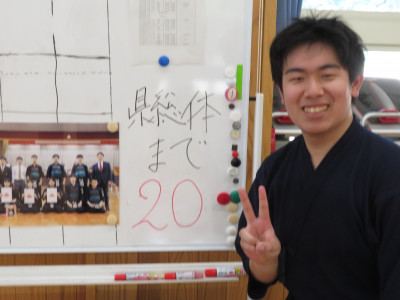 県総体
まで
20